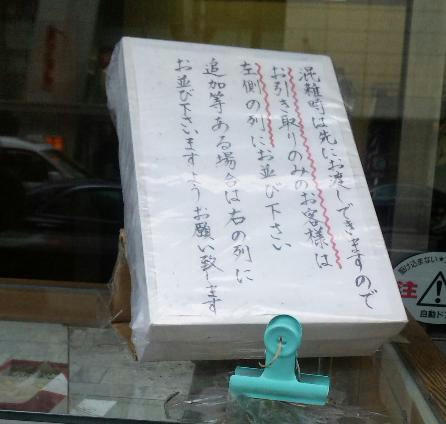 混雑時は先にお渡しできますので
お引き取りのみのお客様は
左側の列にお並び下さい
追加等ある場合は右の列に
お並び下さいますようお願い致します
駆け込まない
注
自動ド